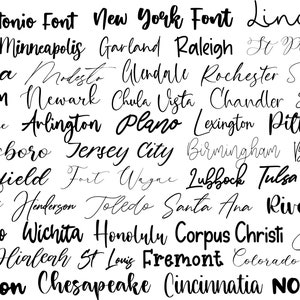 tonio Font New York Font Linc
Minneapolis Garland Raleigh St P
a Modesto Glendale Rochester S
n Newark Chula Vista Chandler
Arlington Plano Lexington Pitt
eboro Jersey City Birmingham
field Fort Wayne Lubbock Tulsa
Henderson Toledo Santa Ana Rive
o Wichita Honolulu Corpus Christi
Hialeah St Louis Fremont Colorado
on Chesapeake Cincinnatia NO